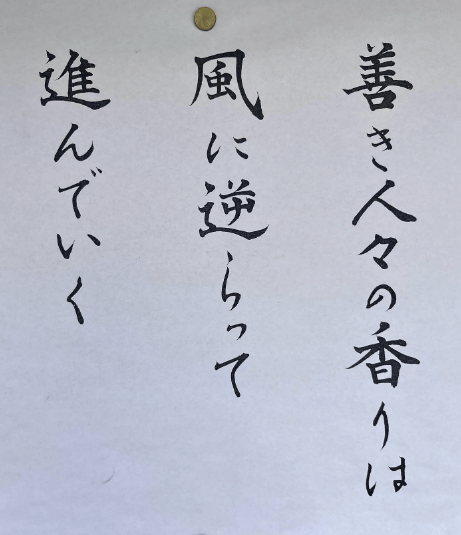 善き人々の香りは
風に逆らって
進んでいく